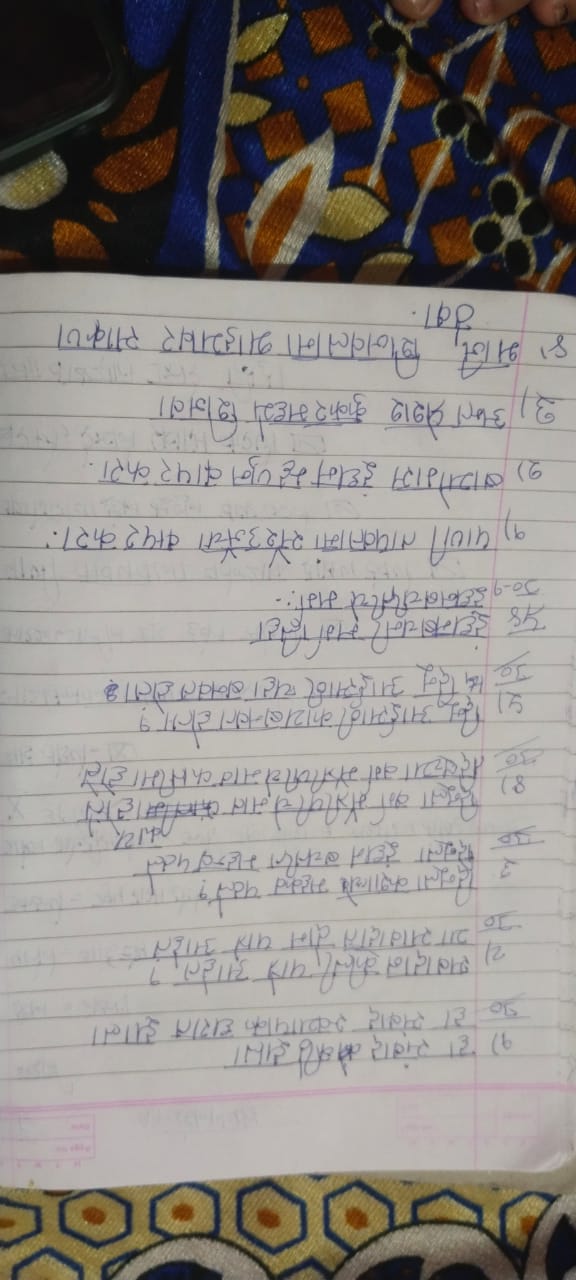 १) हा संवाद कोठे झाला
उ० हा संवाद स्वयापाक घरात झाला
२) सवादान कीली पात्रे आहेत ?
उ० या सावादात दोन पात्रे आहेत
३ दिनूला कशाचे महत्व पटले ?
उ० दिनूला इंधन बचतीत महत्व पटले
४) दिनूला वर्ग मैत्रीणीचे नाव काय होते
उ० दिनूच्या वर्ग मैत्रीणीचे नाव होते
५) दिनू आईसाठी काय बनवत होता ?
उ० दिनू आईसाठी चहा बनवत होता
प्र४ इंधनबचनी मर्ग लिहा
उ०-१ इंधनबचीतीचे मर्ग :-
१) पाणी तापवतामां सैरउर्जेचा वापर करा.
२) बायोगस इंधन म्हणुन वापर करा.
३) अन्त प्रेशर कुकरमध्ये शिजवा
४) भाजि, शिजवलाना भांड्यावर साकण
ठेवा.